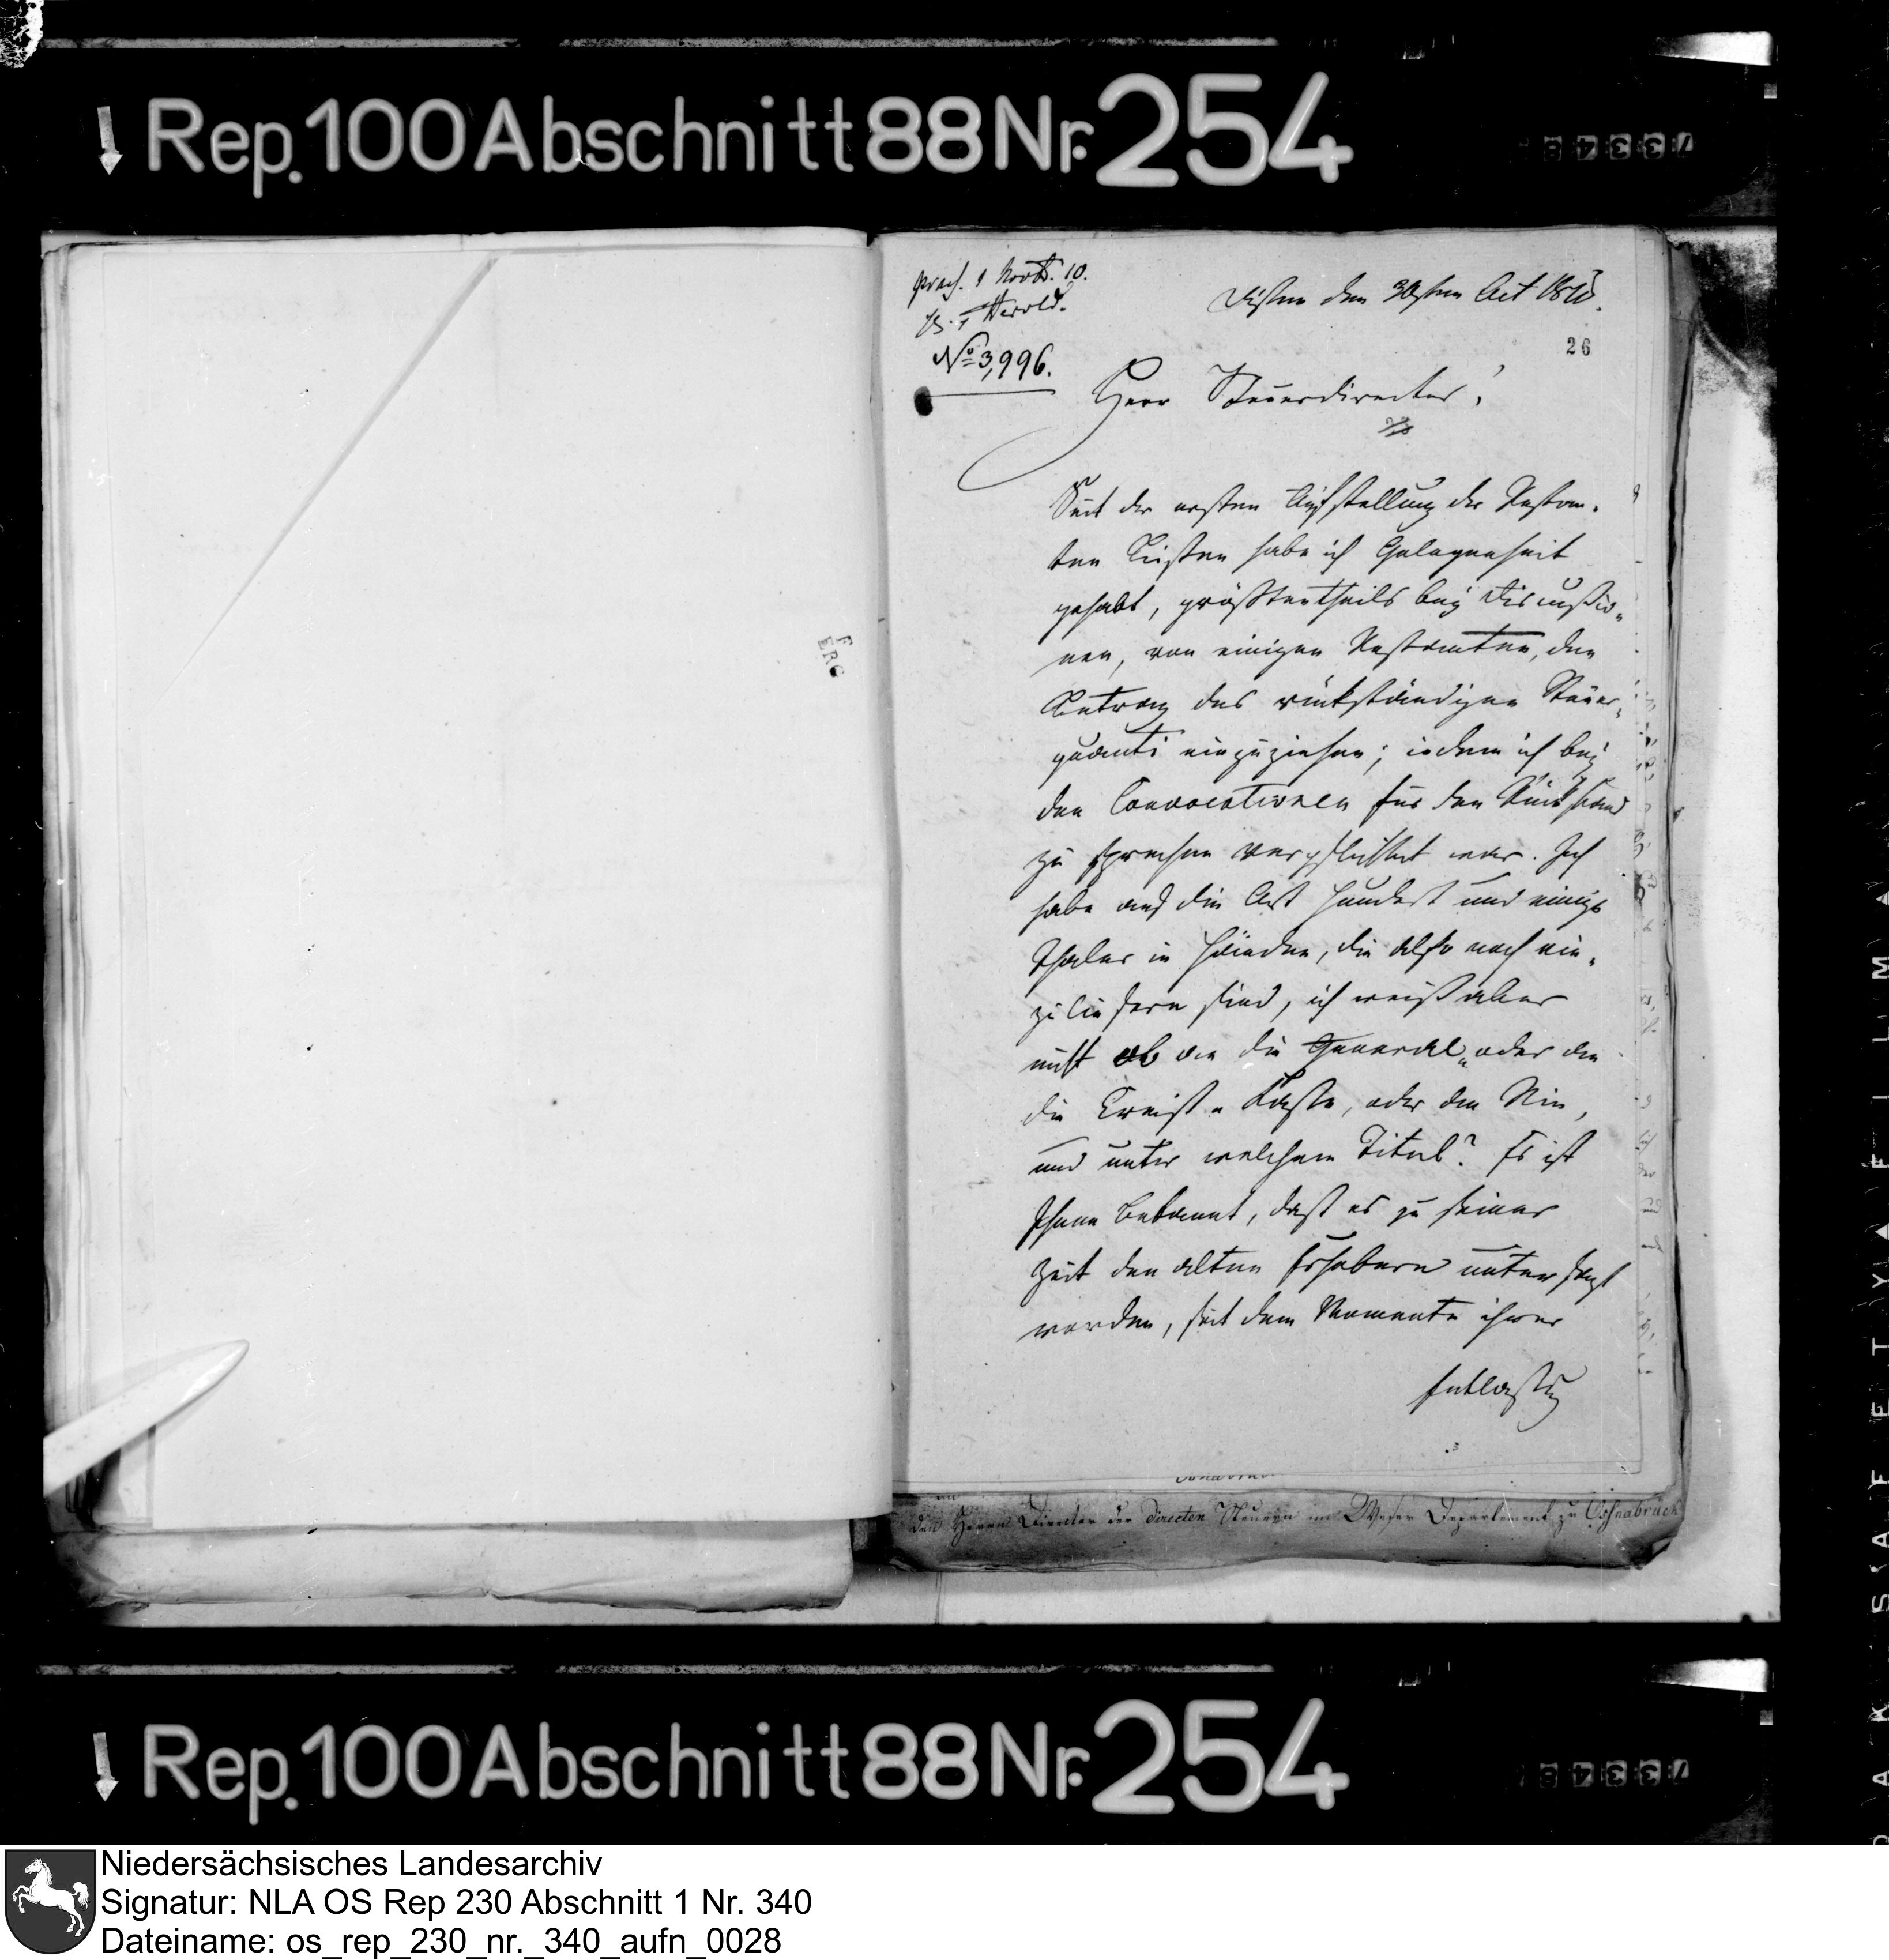 Rep. 100 Abschnitt 88 Nr. 254
praes. 1 Novb. 10.
Herold.
No 3,996.
Dissen den 30sten Oct 1810.
26
Herr Steuerdirector!
Seit der ersten Aufstellung der Restan-
ten Listen habe ich Gelegenheit
gehabt, größtentheils bey Discussio-
nen, von einigen Restanten, den
Betrag des rückständigen Steuer-
quanti einzuziehen; indem ich bey
den Convocationen für den Rückstand
zu sprechen verpflichtet war. Ich
habe auf die Art hundert und einige
Thaler in Händen, die also noch ein-
zuliefern sind, ich weiß aber
nicht ob an die General- oder an
die Creiß-Casse, oder an Sie,
und unter welchem Titul? Es ist
Ihnen bekannt, daß es zu seiner
Zeit den alten Erhebern untersagt
worden, seit dem Momente ihrer
Entlassung
F
ERG
den Herrn Director der directen Steuern im Weser Departement zu Osnabrück
Rep. 100 Abschnitt 88 Nr. 254
Niedersächsisches Landesarchiv
Signatur: NLA OS Rep 230 Abschnitt 1 Nr. 340
Dateiname: os_rep_230_nr._340_aufn_0028